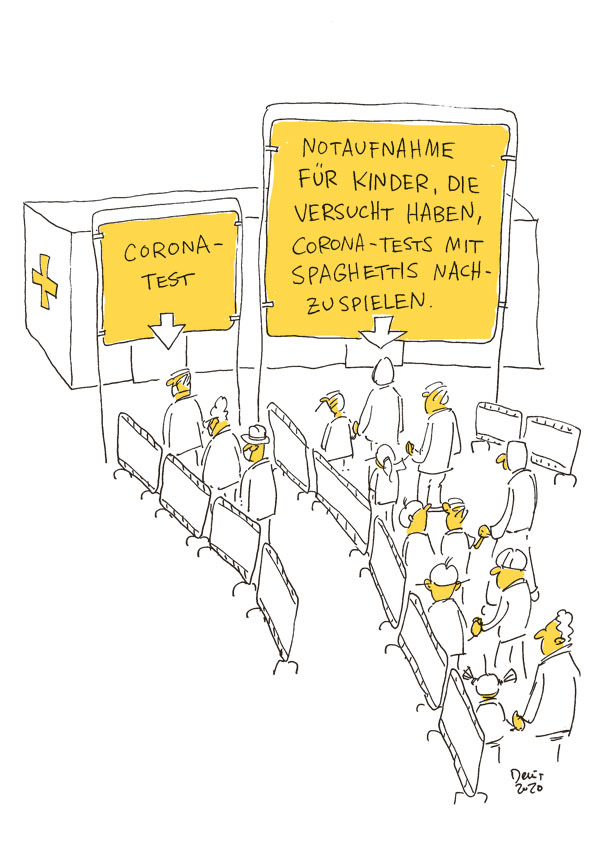 CORONA-
TEST
NOTAUFNAHME
FÜR KINDER, DIE
VERSUCHT HABEN,
CORONA-TESTS MIT
SPAGHETTIS NACH-
ZUSPIELEN.
2020